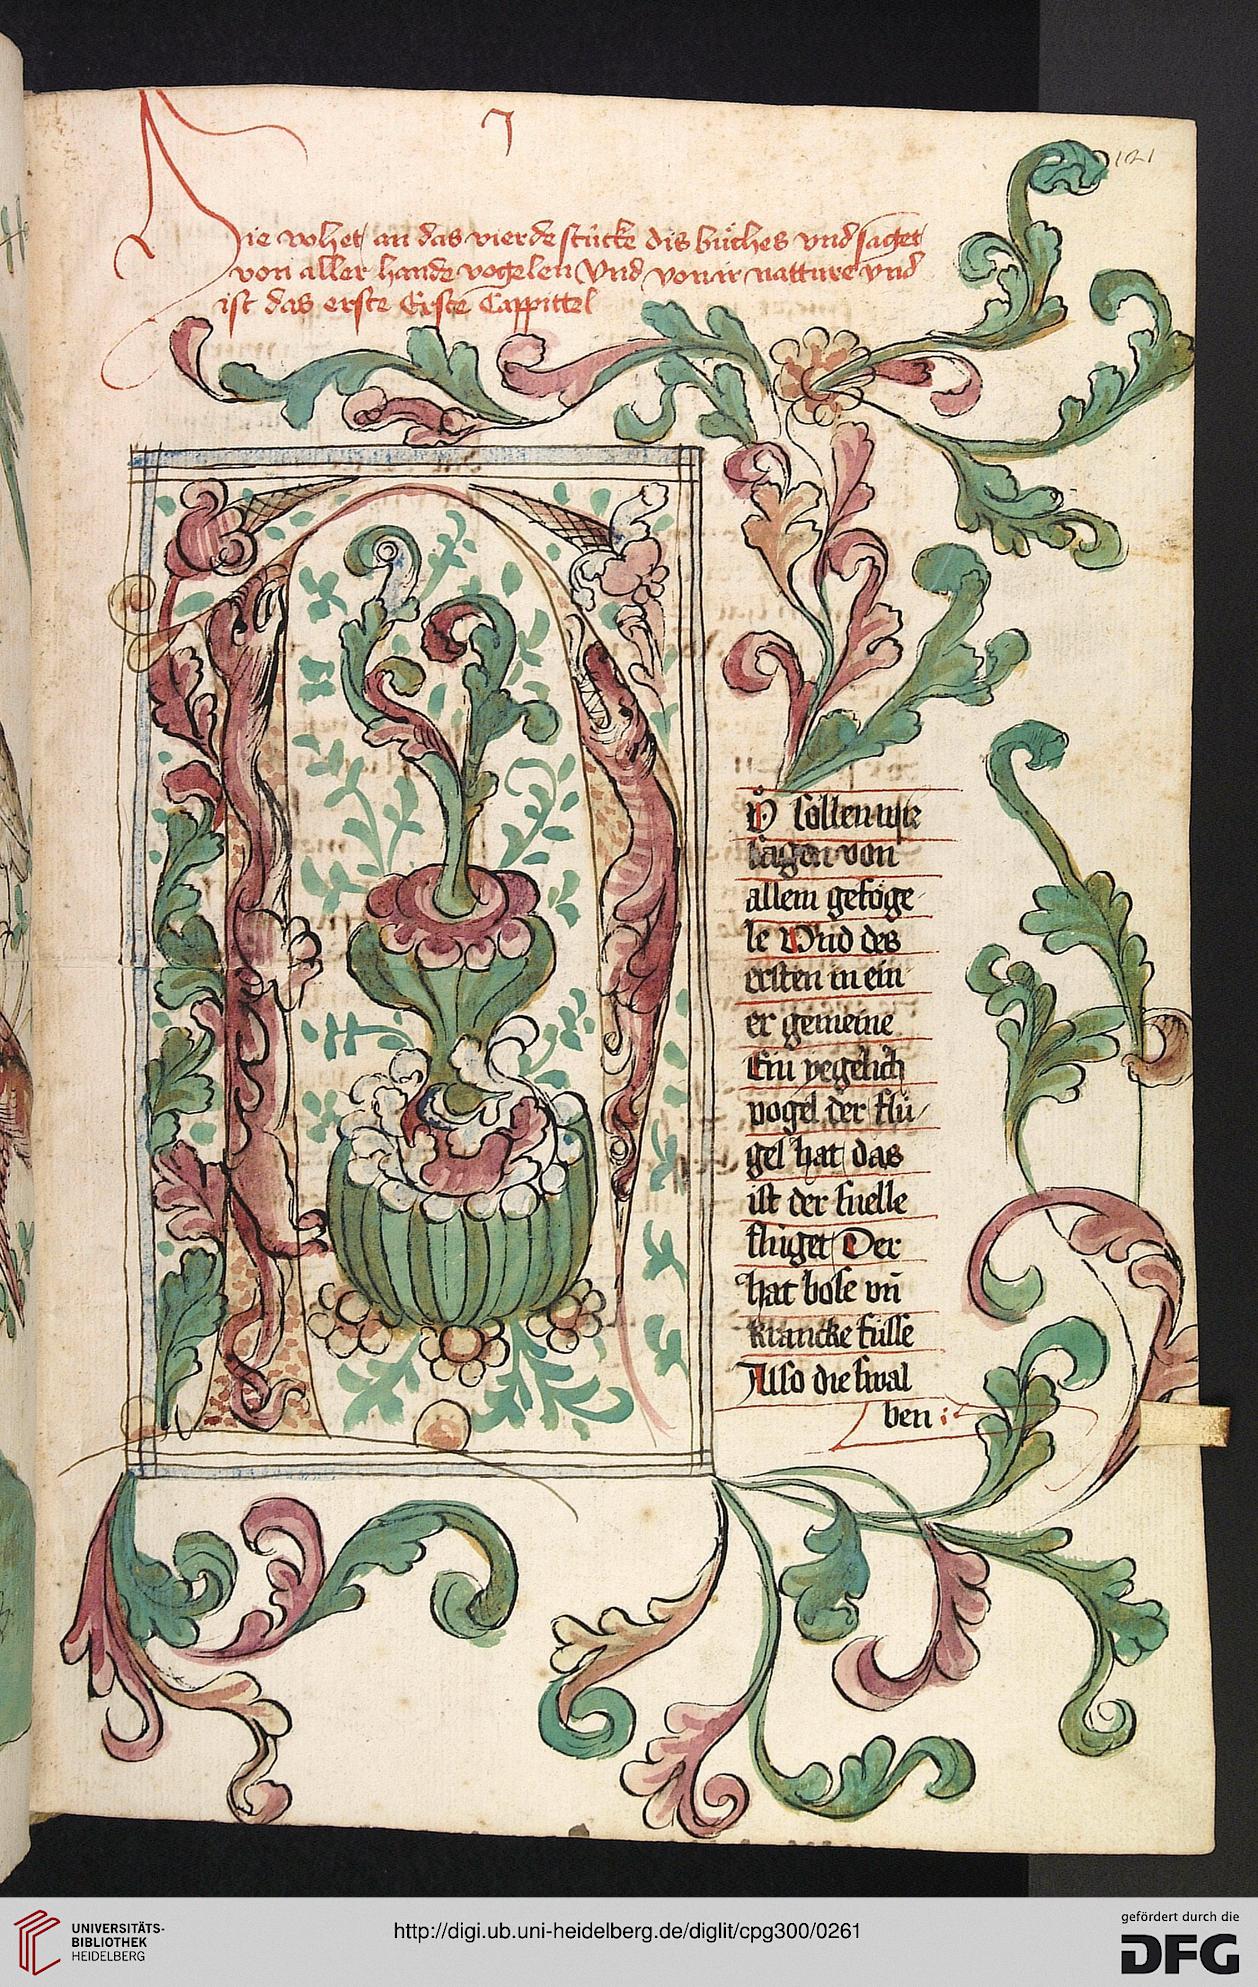 J
121
Hie vohet an das vierde stücke dis büches vnd saget
von aller hande vogelen Vnd von ir natture vnd
ist das erste Erste Cappittel
Nů söllen wir
sagen von
allem geföge-
le Vnd des
ersten in ein
er gemeine
Ein yegelich
vogel der flü/
gel hat das
ist der snelle
flüget Der
hat böse vn̄
krancke füsse
Also die swal
ben
UNIVERSITÄTS-
BIBLIOTHEK
HEIDELBERG
http://digi.ub.uni-heidelberg.de/diglit/cpg300/0261
gefördert durch die
DFG